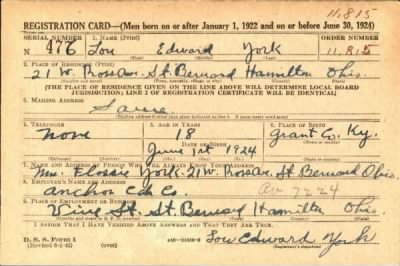 11,815
REGISTRATION CARD—(Men born on or after January 1, 1922 and on or before June 30, 1924)
SERIAL NUMBER 1. NAME (Print) ORDER NUMBER
N 476 Lou Edward York 11,815
2. PLACE OF RESIDENCE (Print)
21 W. Ross Ave. St. Bernard Hamilton Ohio.
(THE PLACE OF RESIDENCE GIVEN ON THE LINE ABOVE WILL DETERMINE LOCAL BOARD
JURISDICTION; LINE 2 OF REGISTRATION CERTIFICATE WILL BE IDENTICAL)
3. MAILING ADDRESS
Same
4. TELEPHONE 5. AGE IN YEARS 6. PLACE OF BIRTH
none 18 Grant Co. Ky.
DATE OF BIRTH
June 1st 1924
7. NAME AND ADDRESS OF PERSON WHO WILL ALWAYS KNOW YOUR ADDRESS
Mrs. Flossie York. 21 W. Ross Ave. St Bernard Ohio.
8. EMPLOYER'S NAME AND ADDRESS
Co. Av 7224
9. PLACE OF EMPLOYMENT OR BUSINESS
Vine St. St. Bernard Hamilton Ohio.
I AFFIRM THAT I HAVE VERIFIED ABOVE ANSWERS AND THAT THEY ARE TRUE.
D. S. S. Form 1
(Revised 6-1-42) (over) Lou Edward York